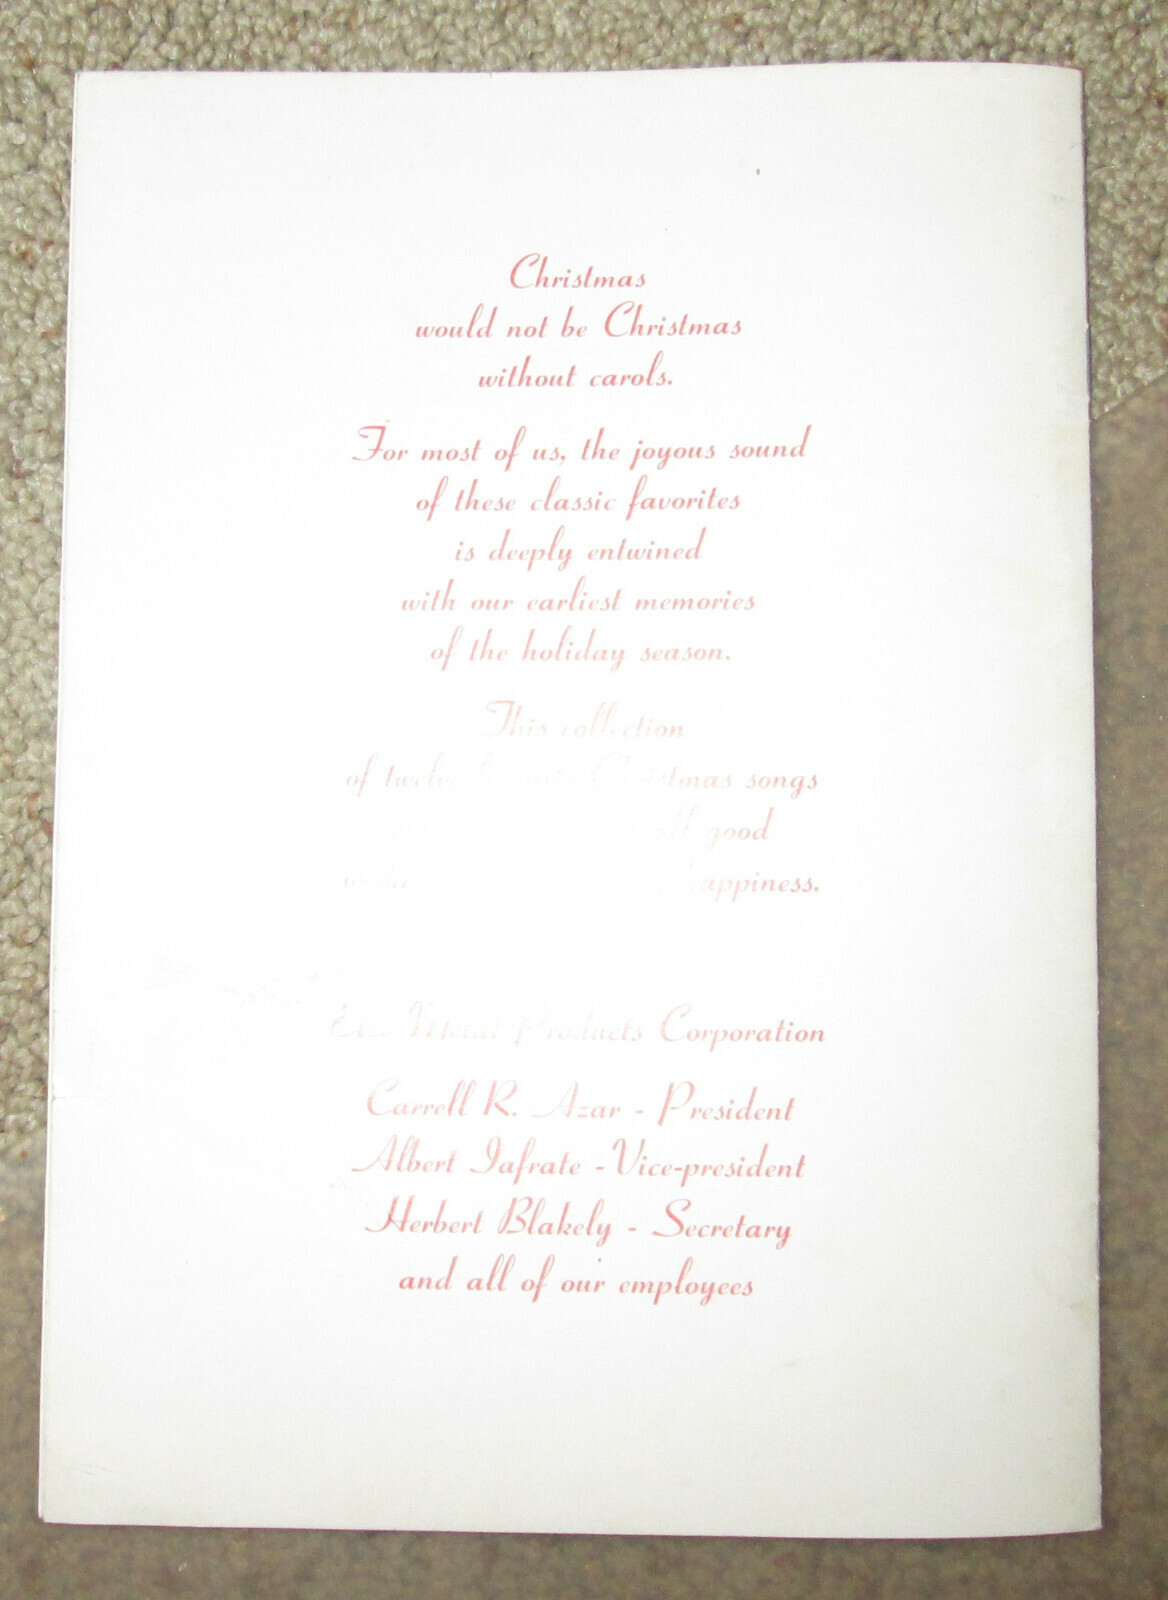 Christmas
would not be Christmas
without carols.
For most of us, the joyous sound
of these classic favorites
is deeply entwined
with our earliest memories
of the holiday season.
This collection
of twelve favorite Christmas songs
good
happiness.
Metal Products Corporation
Carrell R. Azar - President
Albert Iafrate - Vice-president
Herbert Blakely - Secretary
and all of our employees